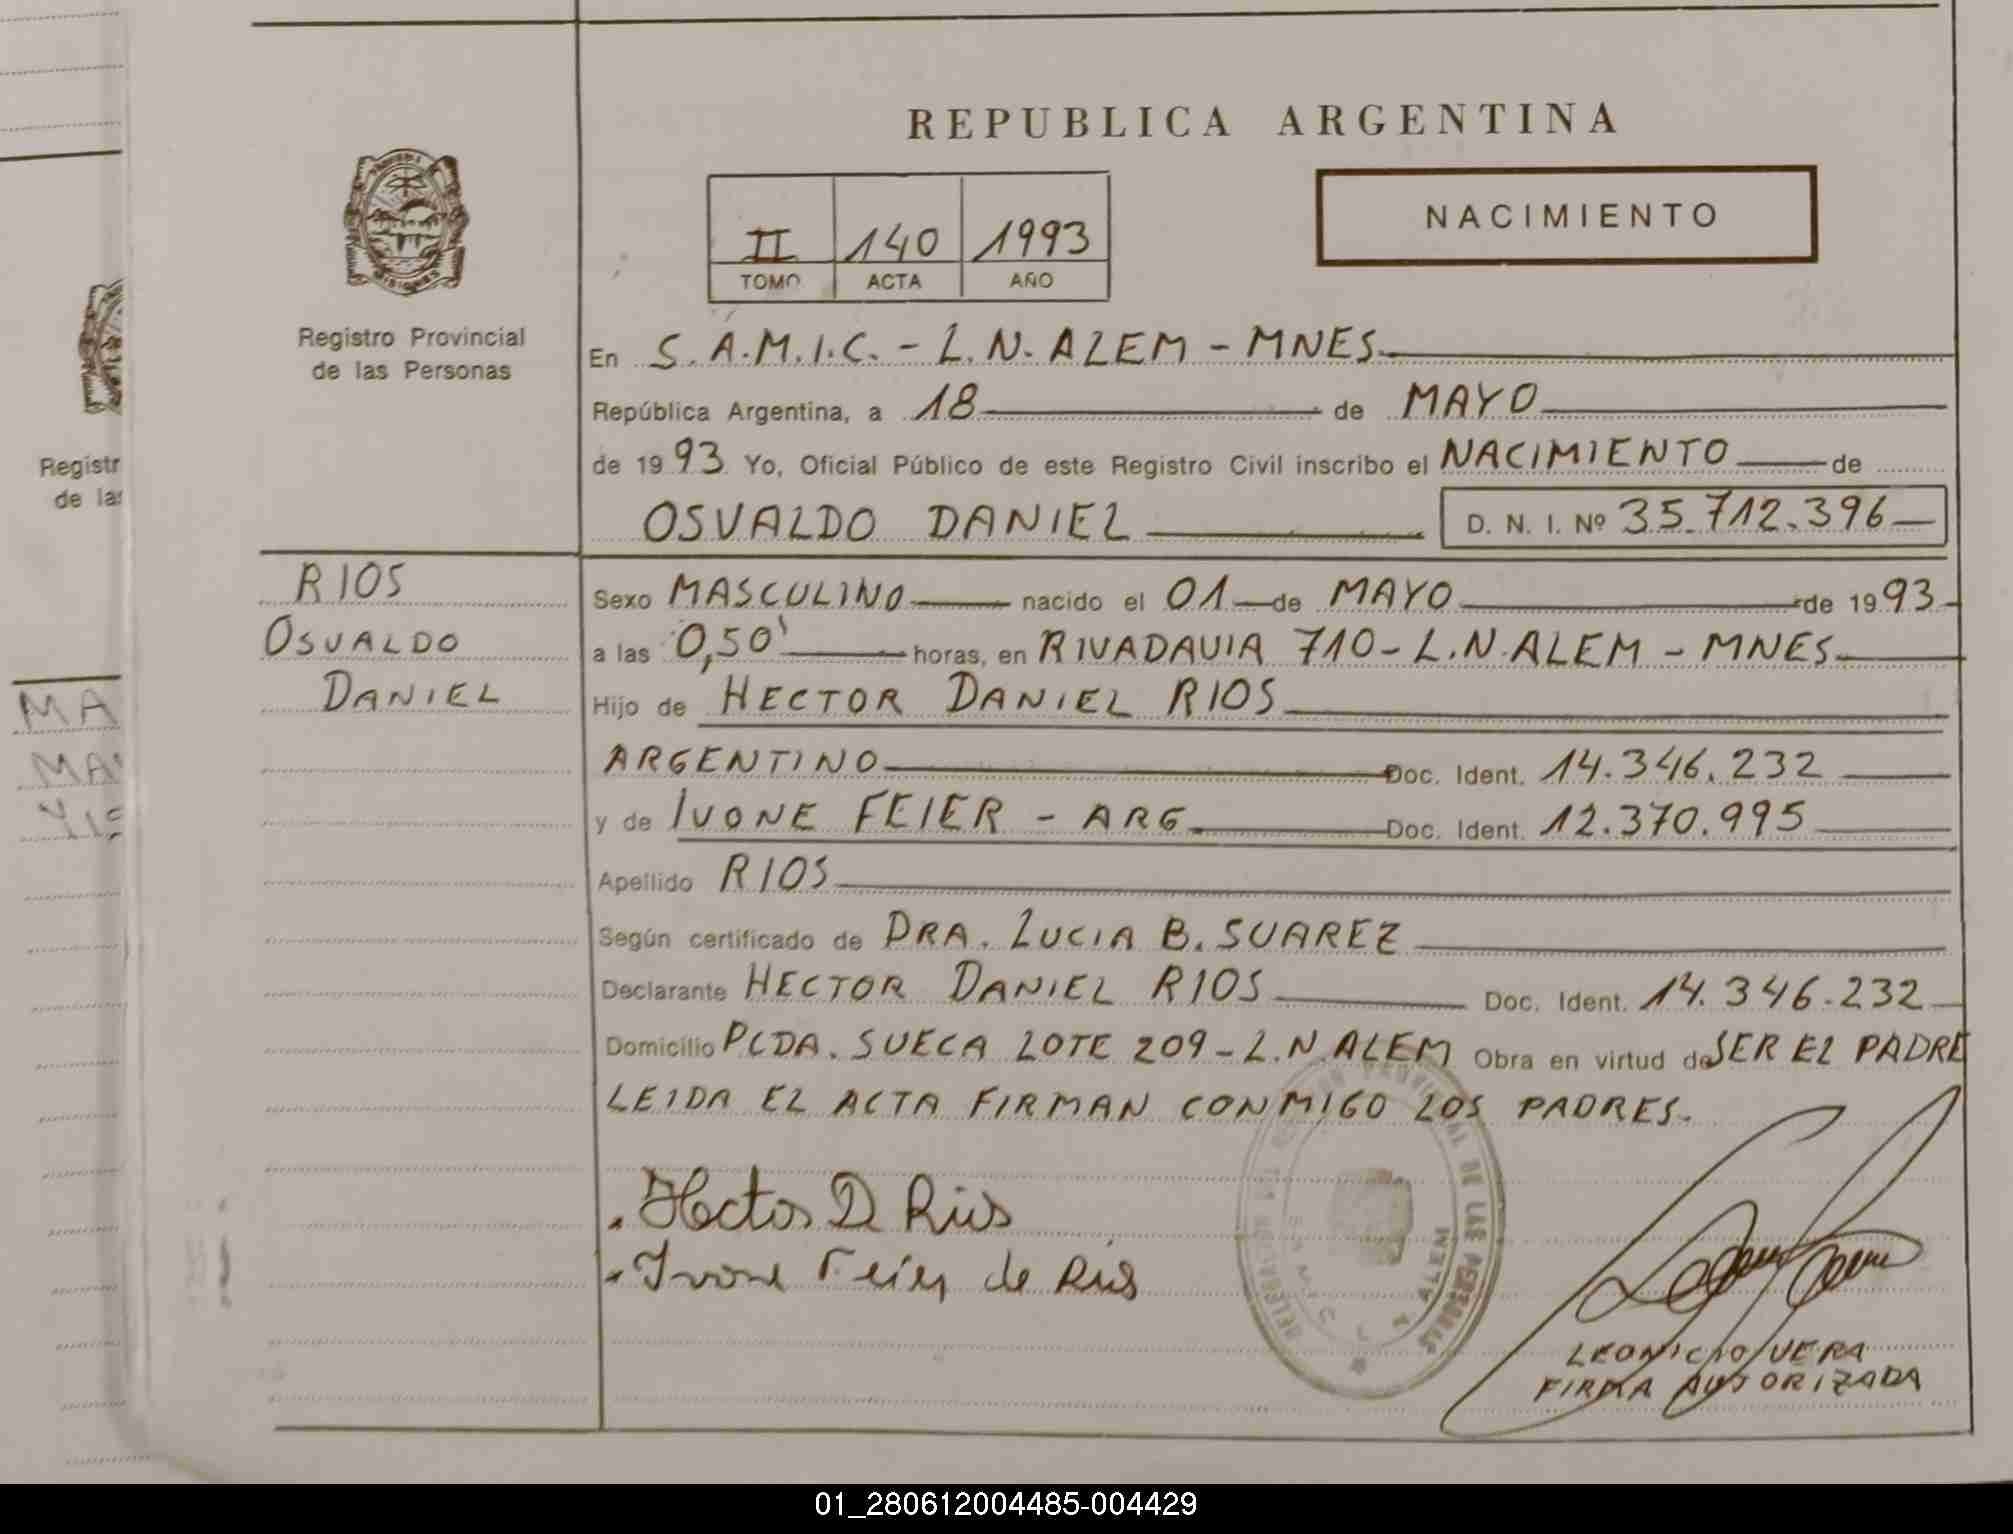 REPUBLICA ARGENTINA
NACIMIENTO
II 140 1993
TOMO ACTA AÑO
MISIONES
Registro Provincial
de las Personas
En S.A.M.I.C. - L.N. ALEM - MNES.
República Argentina, a 18 de MAYO
de 1993 Yo, Oficial Público de este Registro Civil inscribo el NACIMIENTO de
OSVALDO DANIEL D. N. I. Nº 35.712.396
RIOS
OSVALDO
DANIEL
Sexo MASCULINO nacido el 01 de MAYO de 1993
a las 0,50' horas, en RIVADAVIA 710 - L.N. ALEM - MNES.
Hijo de HECTOR DANIEL RIOS
ARGENTINO Doc. Ident. 14.346.232
y de IVONE FEIER - ARG. Doc. Ident. 12.370.995
Apellido RIOS
Según certificado de DRA. LUCIA B. SUAREZ
Declarante HECTOR DANIEL RIOS Doc. Ident. 14.346.232
Domicilio PCDA. SUECA LOTE 209 - L.N. ALEM Obra en virtud de SER EL PADRE
LEIDA EL ACTA FIRMAN CONMIGO LOS PADRES.
Hector D Rios
Ivone Feier de Rios
DE LAS PERSONAS
ALEM
LEONICIO VERA
FIRMA AUTORIZADA
Registr
de las
MA
MA
01_280612004485-004429